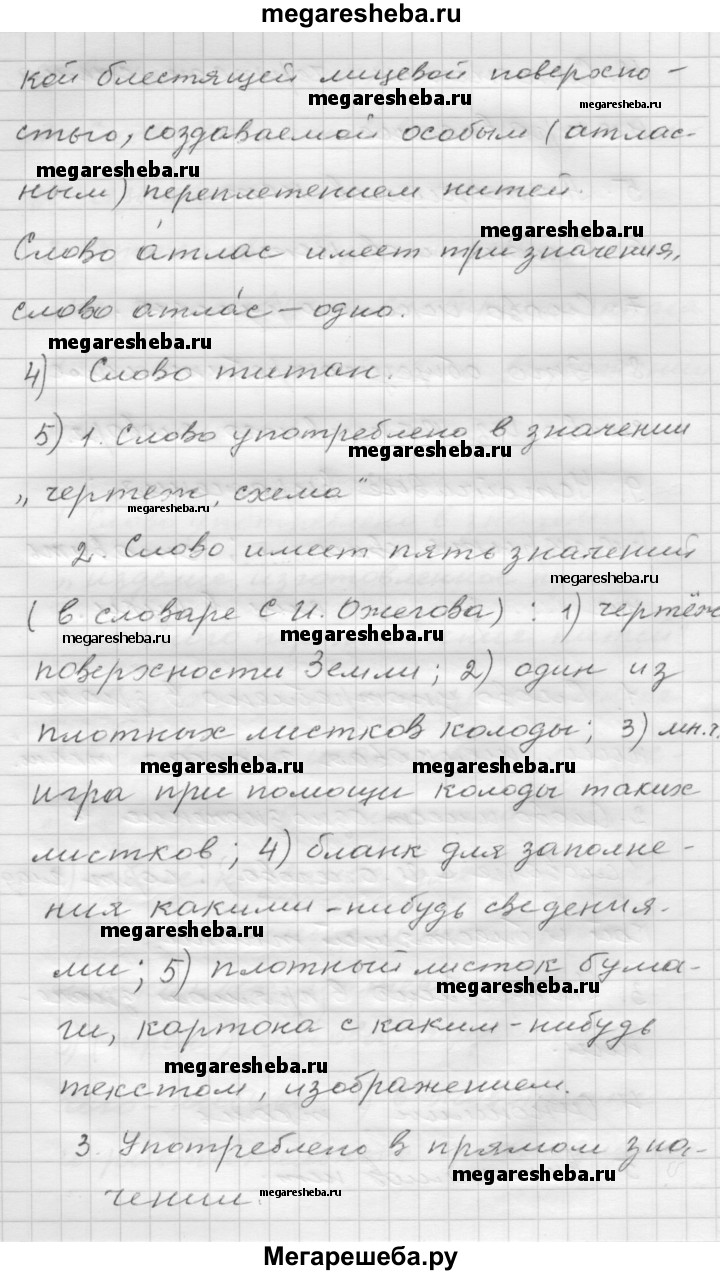 megaresheba.ru
кой блестящей лицевой поверхно-
megaresheba.ru megaresheba.ru
стью, создаваемой особым (атлас-
megaresheba.ru
ным) переплетением нитей.
megaresheba.ru
Слово а́тлас имеет три значения,
слово атла́с – одно.
megaresheba.ru
4) Слово титан.
5) 1. Слово употреблено в значении
megaresheba.ru
„чертеж, схема"
megaresheba.ru
2. Слово имеет пять значений
megaresheba.ru
(в словаре С И. Ожегова) : 1) чертёж
megaresheba.ru megaresheba.ru
поверхности Земли; 2) один из
плотных листков колоды; 3) мн.ч.
megaresheba.ru megaresheba.ru
игра при помощи колоды таких
листков; 4) бланк для заполне-
ния какими-нибудь сведения-
megaresheba.ru
ми; 5) плотный листок бума-
megaresheba.ru
ги, картона с каким-нибудь
megaresheba.ru
текстом, изображением.
3. Употреблено в прямом зна-
megaresheba.ru
чении.
megaresheba.ru
Мегарешеба.ру